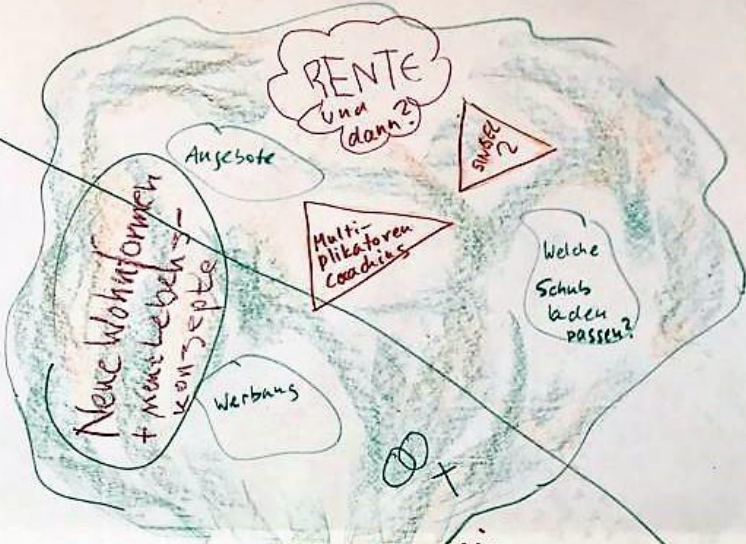 RENTE
und
dann?
SINGEL
?
Angebote
Multi-
plikatoren
coaching
Welche
Schub
laden
passen?
Neue Wohnformen
+ neue Lebens-
konzepte
Werbung